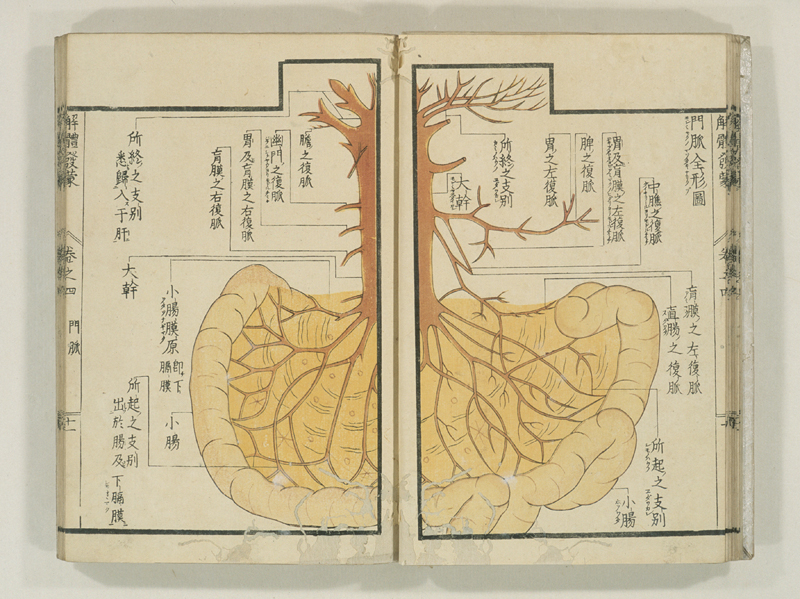 解體發蒙
門脈全形圖
中膲之復脈
胃及肓膜之左復脈
脾之復脈
胃之左復脈
所終之支别
大幹
肓膜之左復脈
直腸之復脈
所起之支别
小腸
膽之復脈
幽門之復脈
胃及肓膜之右復脈
肓膜之右復脈
所終之支别
悉歸入于肝
大幹
小腸膜原
即下膈膜
小腸
所起之支别
出於腸及下膈膜
解體發蒙
卷之四
門脈
十一